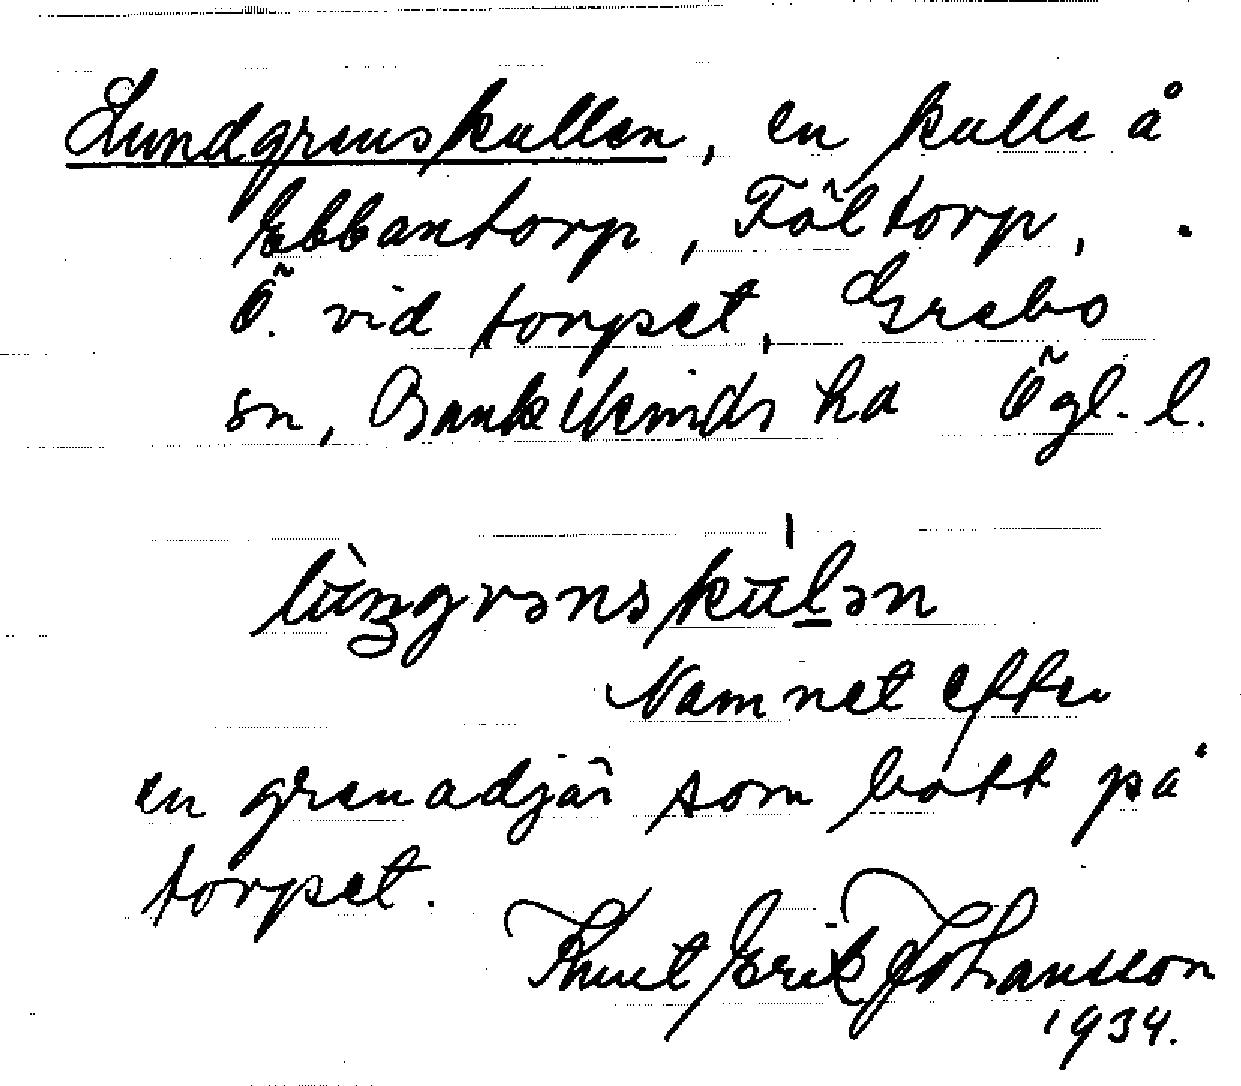 Lundgrenskullen, en kulle å
Ebbantorp, Fältorp,
Ö. vid torpet, Grebo
sn, Bankekinds hd Ögl. l.
lùŋgrənskūlən
Namnet efter
en grenadjär som bott på
torpet.
Knut Erik Johansson
1934.